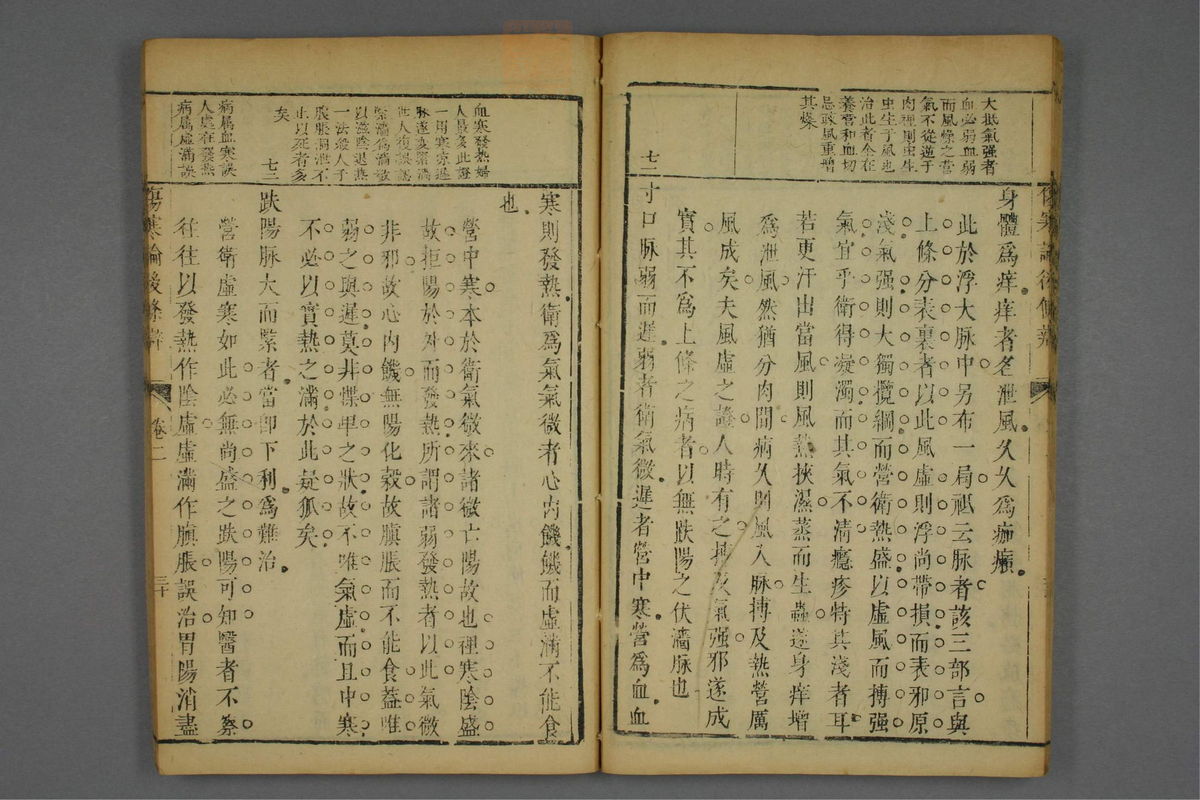 大抵氣强者
血必弱血弱
而風燥之營
氣不從逆于
肉裡則虫生
虫生于風也
治此者全在
養營和血切
忌疎風重增
其燥
身體爲痒痒者名泄風久久爲痂癩
此於浮大脉中另布一局祗云脉者該三部言與
上條分表裏者以此風虛則浮尚帶損而表邪原
淺氣强則大獨攬綱而營衛熱盛以虛風而摶强
氣宜乎衛得凝濁而其氣不清癮疹特其淺者耳
若更汗出當風則風熱挾濕蒸而生蟲遂身痒增
爲泄風然猶分肉間病久則風入脉摶及熱營厲
風成矣夫風虛之證人時有之挾及氣强邪遂成
實其不爲上條之病者以無趺陽之伏濇脉也
七一
寸口脉弱而遲弱者衛氣微遲者營中寒營爲血血
血寒發熱婦
人最多此證
一用寒凉遏
脉遂變緊滿
世人復誤認
緊滿爲滿微
以滋陰退熱
一法緩人于
脹脹洞泄不
止以死者多
矣
病屬血寒誤
人處在發熱
病屬虛滿誤
寒則發熱衛爲氣氣微者心內饑饑而虛滿不能食
也
營中寒本於衛氣微來諸微亡陽故也裡寒陰盛
故拒陽於外而發熱所謂諸弱發熱者以此氣微
非邪故心內饑無陽化穀故䐜脹而不能食葢唯
弱之與遲莫非惵卑之狀故不唯氣虛而且中寒
不必以實熱之滿於此疑狐矣
七二
趺陽脉大而緊者當即下利爲難治
營衛虛寒如此必無尚盛之趺陽可知醫者不察
往往以發熱作陰虛虛滿作䐜脹誤治胃陽消盡
傷寒論後條辨
卷二
三十